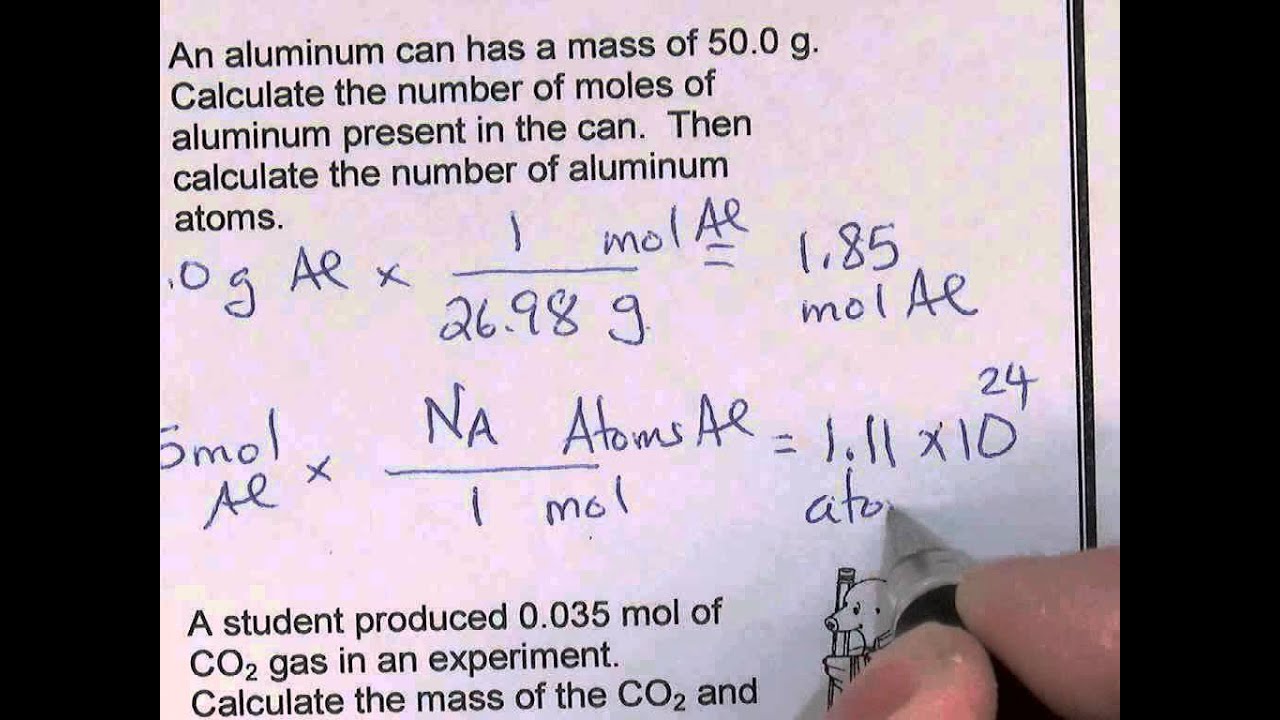 An aluminum can has a mass of 50.0 g.
Calculate the number of moles of
aluminum present in the can. Then
calculate the number of aluminum
atoms.
.0 g Al × 1 mol Al / 26.98 g = 1.85
mol Al
5 mol Al × NA Atoms Al / 1 mol = 1.11 × 10^24
ato
A student produced 0.035 mol of
CO₂ gas in an experiment.
Calculate the mass of the CO₂ and